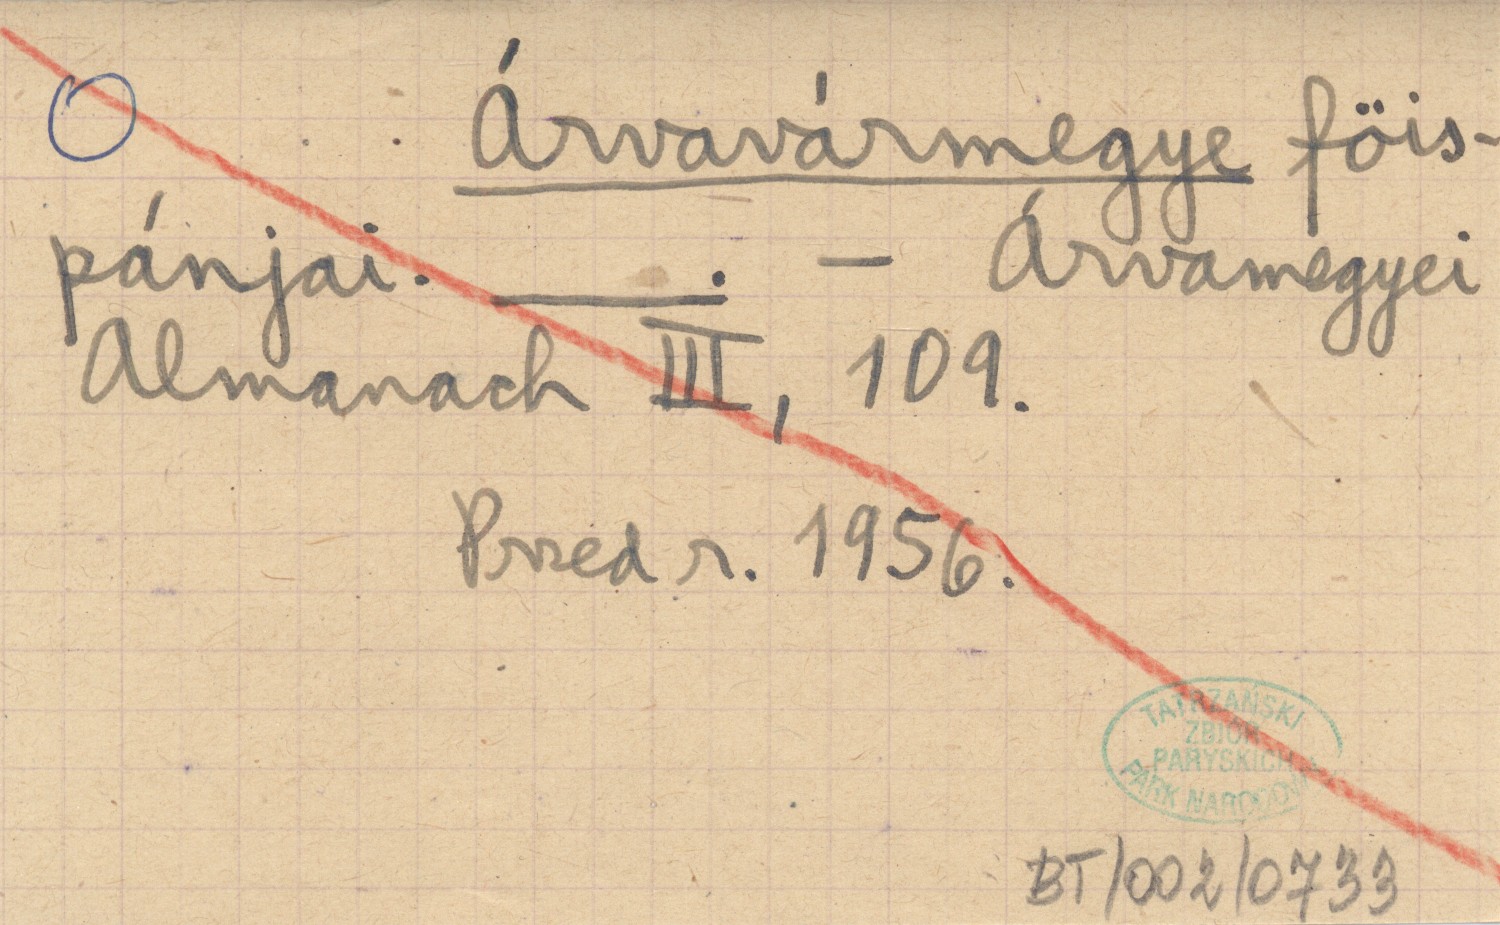 Árvavármegye föis-
pánjai. ____. — Árvamegyei
Almanach III, 109.
Przed r. 1956.
TATRZAŃSKI
ZBIÓR
PARYSKICH
PARK NARODOWY
BT/002/0733